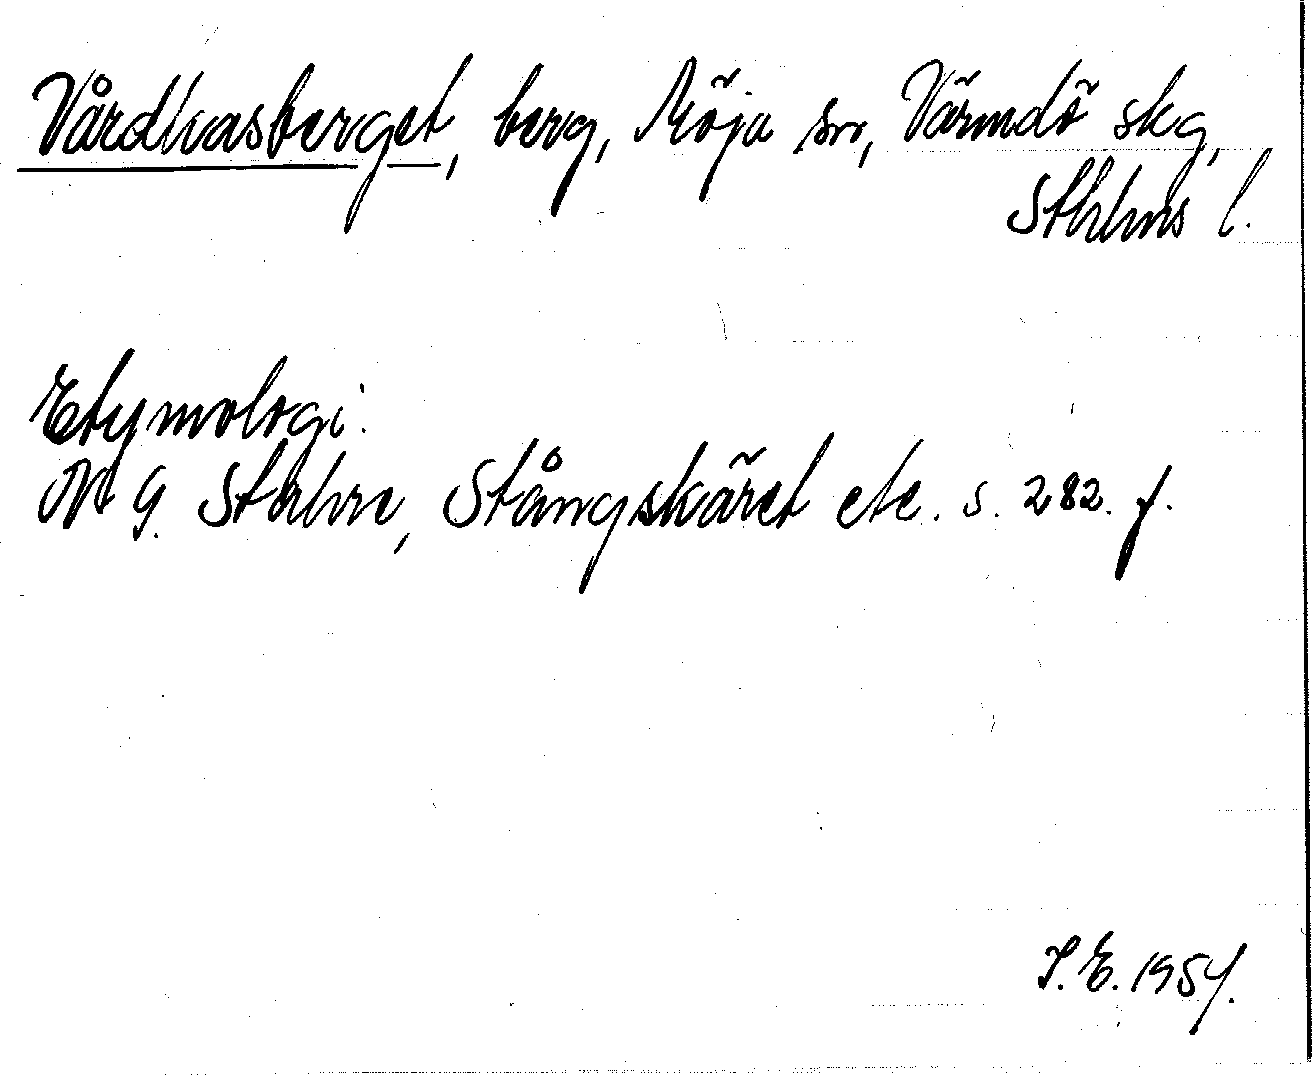 Vårdkasberget, berg, Möja sn, Värmdö skg,
Sthlms l.
Etymologi:
N G Stahre, Stångskäret etc. s. 282. f.
I. E. 1954.